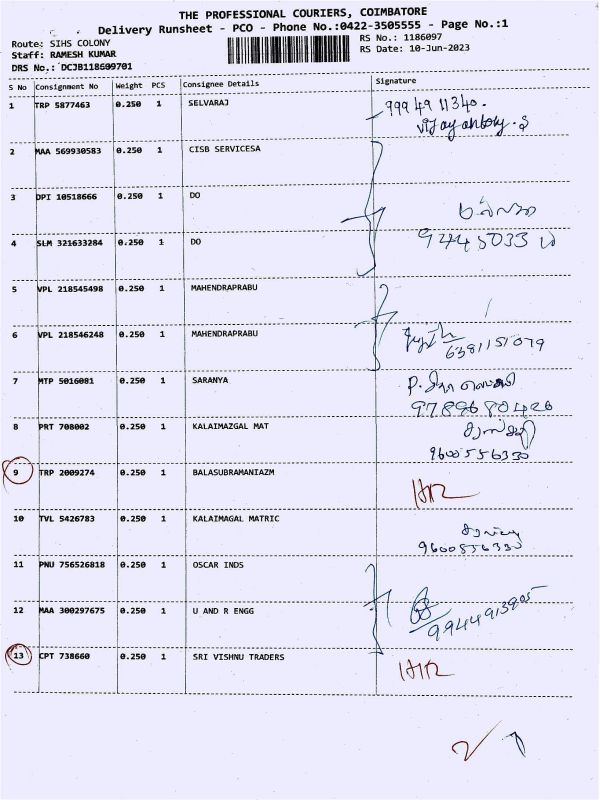 THE PROFESSIONAL COURIERS, COIMBATORE
Delivery Runsheet - PCO - Phone No.:0422-3505555 - Page No.:1
Route: SIHS COLONY
RS No.: 1186097
Staff: RAMESH KUMAR
RS Date: 10-Jun-2023
DRS No.: DCJB118609701
S No Consignment No Weight PCS Consignee Details Signature
1 TRP 5877463 0.250 1 SELVARAJ 999 49 11340.
vijay antony. S
2 MAA 569930583 0.250 1 CISB SERVICESA
3 DPI 10518666 0.250 1 DO
4 SLM 321633284 0.250 1 DO
5 VPL 218545498 0.250 1 MAHENDRAPRABU
6 VPL 218546248 0.250 1 MAHENDRAPRABU
6381151079
7 MTP 5016081 0.250 1 SARANYA
9789680426
8 PRT 708002 0.250 1 KALAIMAZGAL MAT
9600556330
9 TRP 2009274 0.250 1 BALASUBRAMANIAZM
10 TVL 5426783 0.250 1 KALAIMAGAL MATRIC
9600556330
11 PNU 756526818 0.250 1 OSCAR INDS
12 MAA 300297675 0.250 1 U AND R ENGG
9944913905
13 CPT 738660 0.250 1 SRI VISHNU TRADERS